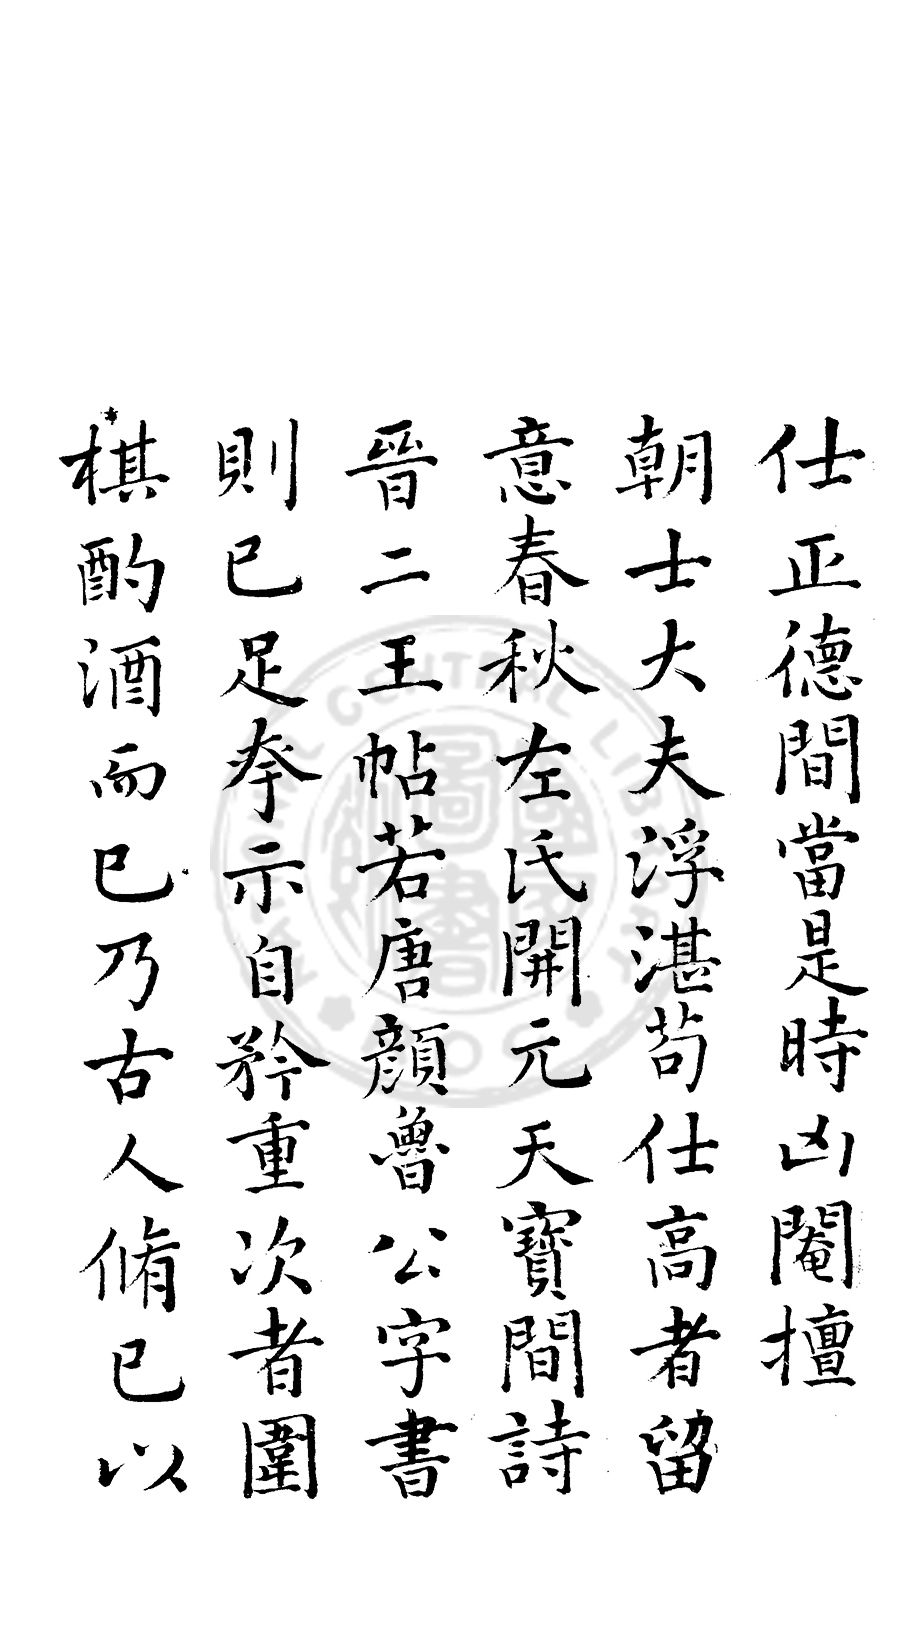 仕正德間當是時凶閹擅
朝士大夫浮湛苟仕高者留
意春秋左氏開元天寶間詩
晉二王帖若唐顏魯公字書
則已足夸示自矜重次者圍
棋酌酒而已乃古人脩已以
NATIONAL CENTRAL LIBRARY